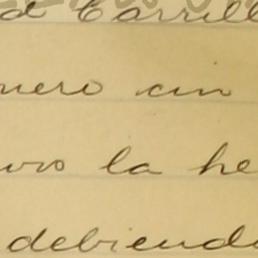 d Carrill
nero cin
uvo la he
debiend